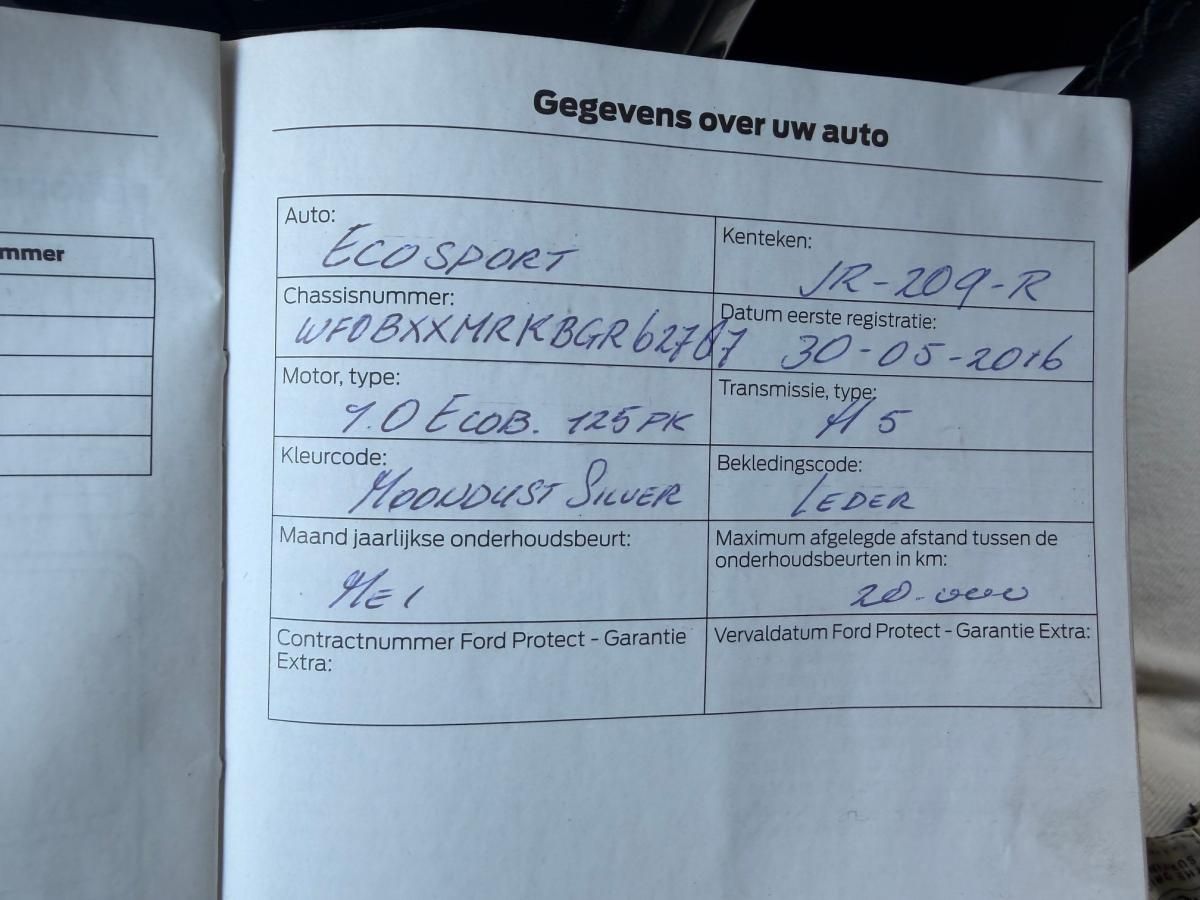 mmer
Gegevens over uw auto
Auto:
ECOSPORT
Kenteken:
JR-209-R
Chassisnummer:
WF0BXXMRKBGR62787
Datum eerste registratie:
30-05-2016
Motor, type:
1.0 ECOB. 125PK
Transmissie, type:
M5
Kleurcode:
MOONDUST SILVER
Bekledingscode:
LEDER
Maand jaarlijkse onderhoudsbeurt:
MEI
Maximum afgelegde afstand tussen de
onderhoudsbeurten in km:
20.000
Contractnummer Ford Protect - Garantie
Extra:
Vervaldatum Ford Protect - Garantie Extra: